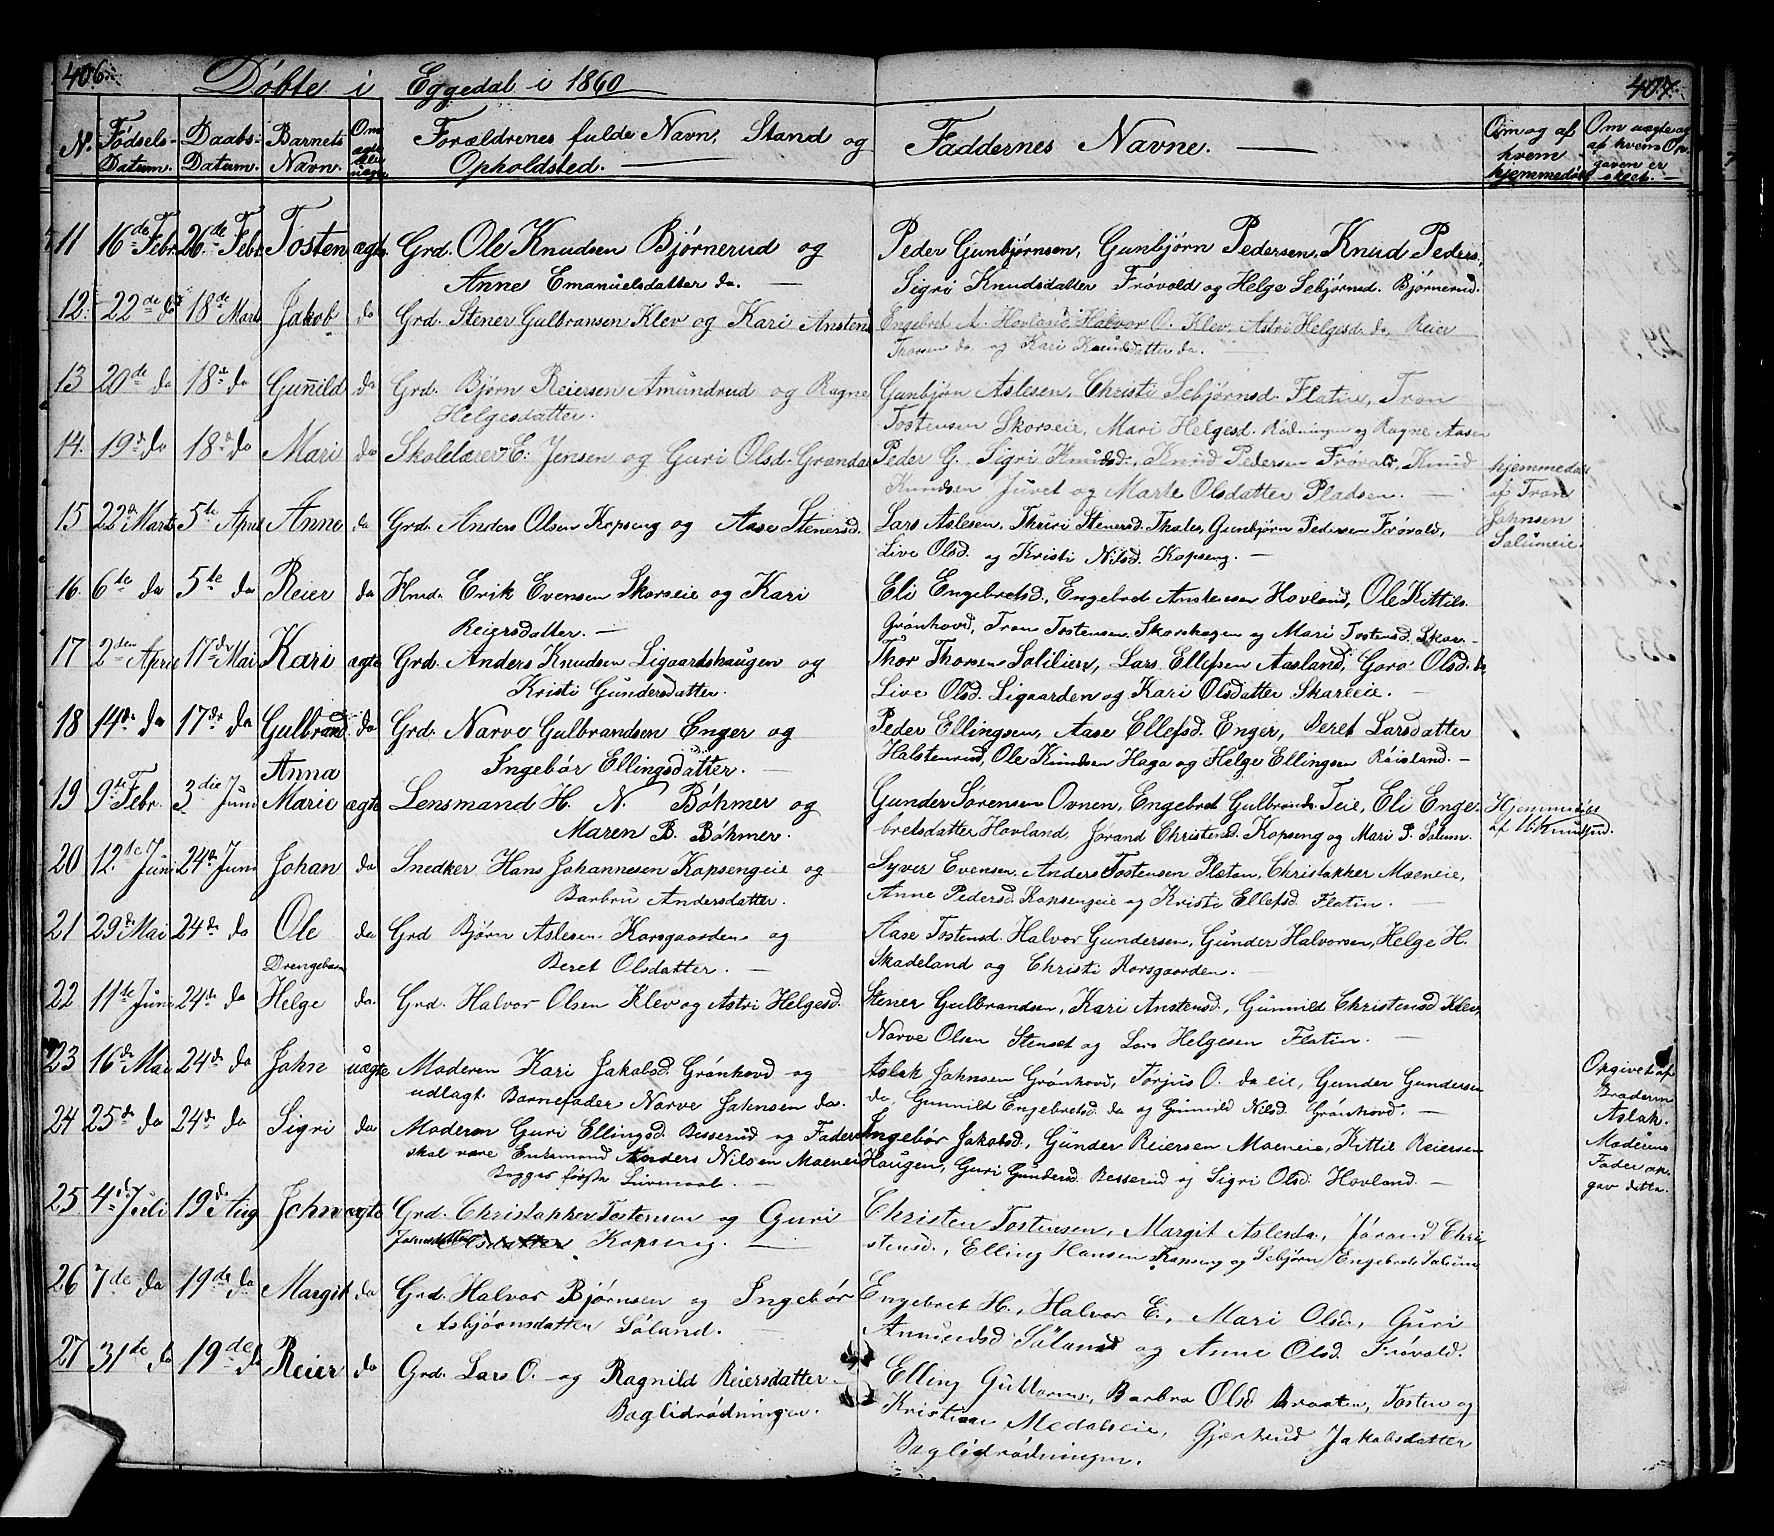 406.
Døbte i Eggedal i 1860
407.
N. Fødsels-Datum. Daabs-Datum. Barnets Navn. Om ægte eller uægte Forældrenes fulde Navn, Stand og Opholdsted. Faddernes Navne. Om og af hvem hjemmedøbt Om uægte og af hvem Opgaven er skeet.
11 16de Febr. 26de Febr. Tosten ægte Grd. Ole Knudsen Bjørnerud og Peder Gunbjørnsen, Gunbjørn Pedersen, Knud Peders.
Anne Emanuelsdatter do. Sigri Knudsdatter Frøvold og Helge Sebjørnsd. Bjørnerud.
12. 22de do 18de Marts Jakob do Grd. Stener Gulbransen Klev og Kari Anstensd Engebret A. Hovland, Halvor O. Klev, Astri Helgesd. do, Reier
Thorsen do og Kari Knudsdatter do.
13 20de do 18de do Gunild do Grd. Bjørn Reiersen Amundrud og Ragne Gunbjørn Aslesen, Christi Sebjørnsd. Flatin, Tron
Helgesdatter. Tostensen Skorseie, Mari Helgesd. Rødningen og Ragne Aasen
14. 19de do 18de do Mari do Skolelærer E. Jensen og Guri Olsd. Grandas Peder G. Sigri Knudsd., Knud Pedersen Frøvold, Knud hjemmedøbt
Knudsen Juvet og Marte Olsdatter Pladsen. af Tron
15 22de Marts 5te April Anne do Grd. Anders Olsen Kopseng og Aase Stenersd. Lars Aslesen, Thuri Stenersd. Thales, Gunbjørn Pedersen Frøvold, Johnsen
Live Olsd. og Kristi Nilsd. Kopseng. Solumeie.
16. 6te do 5te do Reier do Hmd. Erik Evensen Skorseie og Kari Eli Engebretsd., Engebret Anstensen Hovland, Ole Kittils.
Reiersdatter. Grønhovd, Tron Tostensen, Skorshagen og Mari Tostensd. Skor
17 2den April 17de Mai Kari ægte Grd. Anders Knudsen Ligaardshaugen og Thor Thorsen Solilien, Lars Ellefsen Aasland, Goro Olsd. do
Kristi Gundersdatter. Live Olsd. Ligaarden og Kari Olsdatter Skareeie.
18 14de do 17de do Gulbrand do Grd. Narve Gulbrandsen Enger og Peder Ellingsen, Aase Ellefsd. Enger, Beret Larsdatter
Ingebør Ellingsdatter. Halstenrud, Ole Knudsen Haga og Helge Ellingsen Røisland.
Anna
19 9de Febr. 3die Juni Marie ægte Lensmand H. N. Bøhmer og Gunder Sørensen Ovnen, Engebret Gulbrands. Teie, Eli Enge- Hjemmedøbt
Maren B. Bøhmer. bretsdatter Hovland, Jørand Christensd. Kopseng og Mari P. Solum. af
20 12te Juni 24de Juni Johan do Snedker Hans Johannesen Kopsengeie og Syver Evensen, Anders Tostensen Platan, Christopher Moeneie,
Barbru Andersdatter. Anne Pedersd. Kopsengeie og Kristi Ellefsd. Flatin.
21 29de Mai 24de do Ole do Grd Bjørn Aslesen Korsgaarden og Aase Tostensd. Halvor Gundersen, Gunder Halvorsen, Helge H.
Drengebarn Beret Olsdatter. Skadeland og Christi Korsgaarden.
22 11te Juni 24de do Helge do. Grd. Halvor Olsen Klev og Astri Helgesd. Stener Gulbrandsen, Kari Anstensd., Gunnild Christensd Klev,
Narve Olsen Stenset og Lars Helgesen Flatin.
23 16de Mai 24de do John uægte Moderen Kari Jakobsd. Grønhovd og Aslak Johnsen Grønhovd, Torjus O. do eie, Gunder Gundersen Opgivet af
udlagt Barnefader Narve Johnsen do. do, Gunnild Engebretsd. do og Gunnild Nilsd. Grønhovd. Broderen
24 25de do 24de do Sigri do Moderen Guri Ellingsd. Besserud og Faderen Ingebør Jakobsd., Gunder Reiersen Moeneie, Kittil Reiersen Aslak.
skal være Enkemand Anders Nilsen Moeneie Haugen, Guri Gundersd. Besserud og Sigri Olsd. Hovland. Moderens
Begges første Leiermaal. Fader op-
gav dette.
25 4de Juli 19de Aug John ægte Grd. Christopher Tostensen og Guri Christen Tostensen, Margit Aslesd., Jørand Chri-
Johnsdatter Olsdatter Kopseng. stensd., Elling Hansen Kopseng og Sebjørn Engebrets Solum
26 7de do 19de do Margit do Grd. Halvor Bjørnsen og Ingebør Engebret H., Halvor E., Mari Olsd., Guri
Asbjørnsdatter Søland. Amundsd. Søland og Anne Olsd. Frøvold.
27 31te do 19de do Reier do Grd. Lars O. og Ragnild Reiersdatter Elling Guttorms., Barbro Olsd Braaten, Tosten og
Baglidrødningen. Kristine Medalseie, Gjertrud Jakobsdatter
Baglidrødningen.